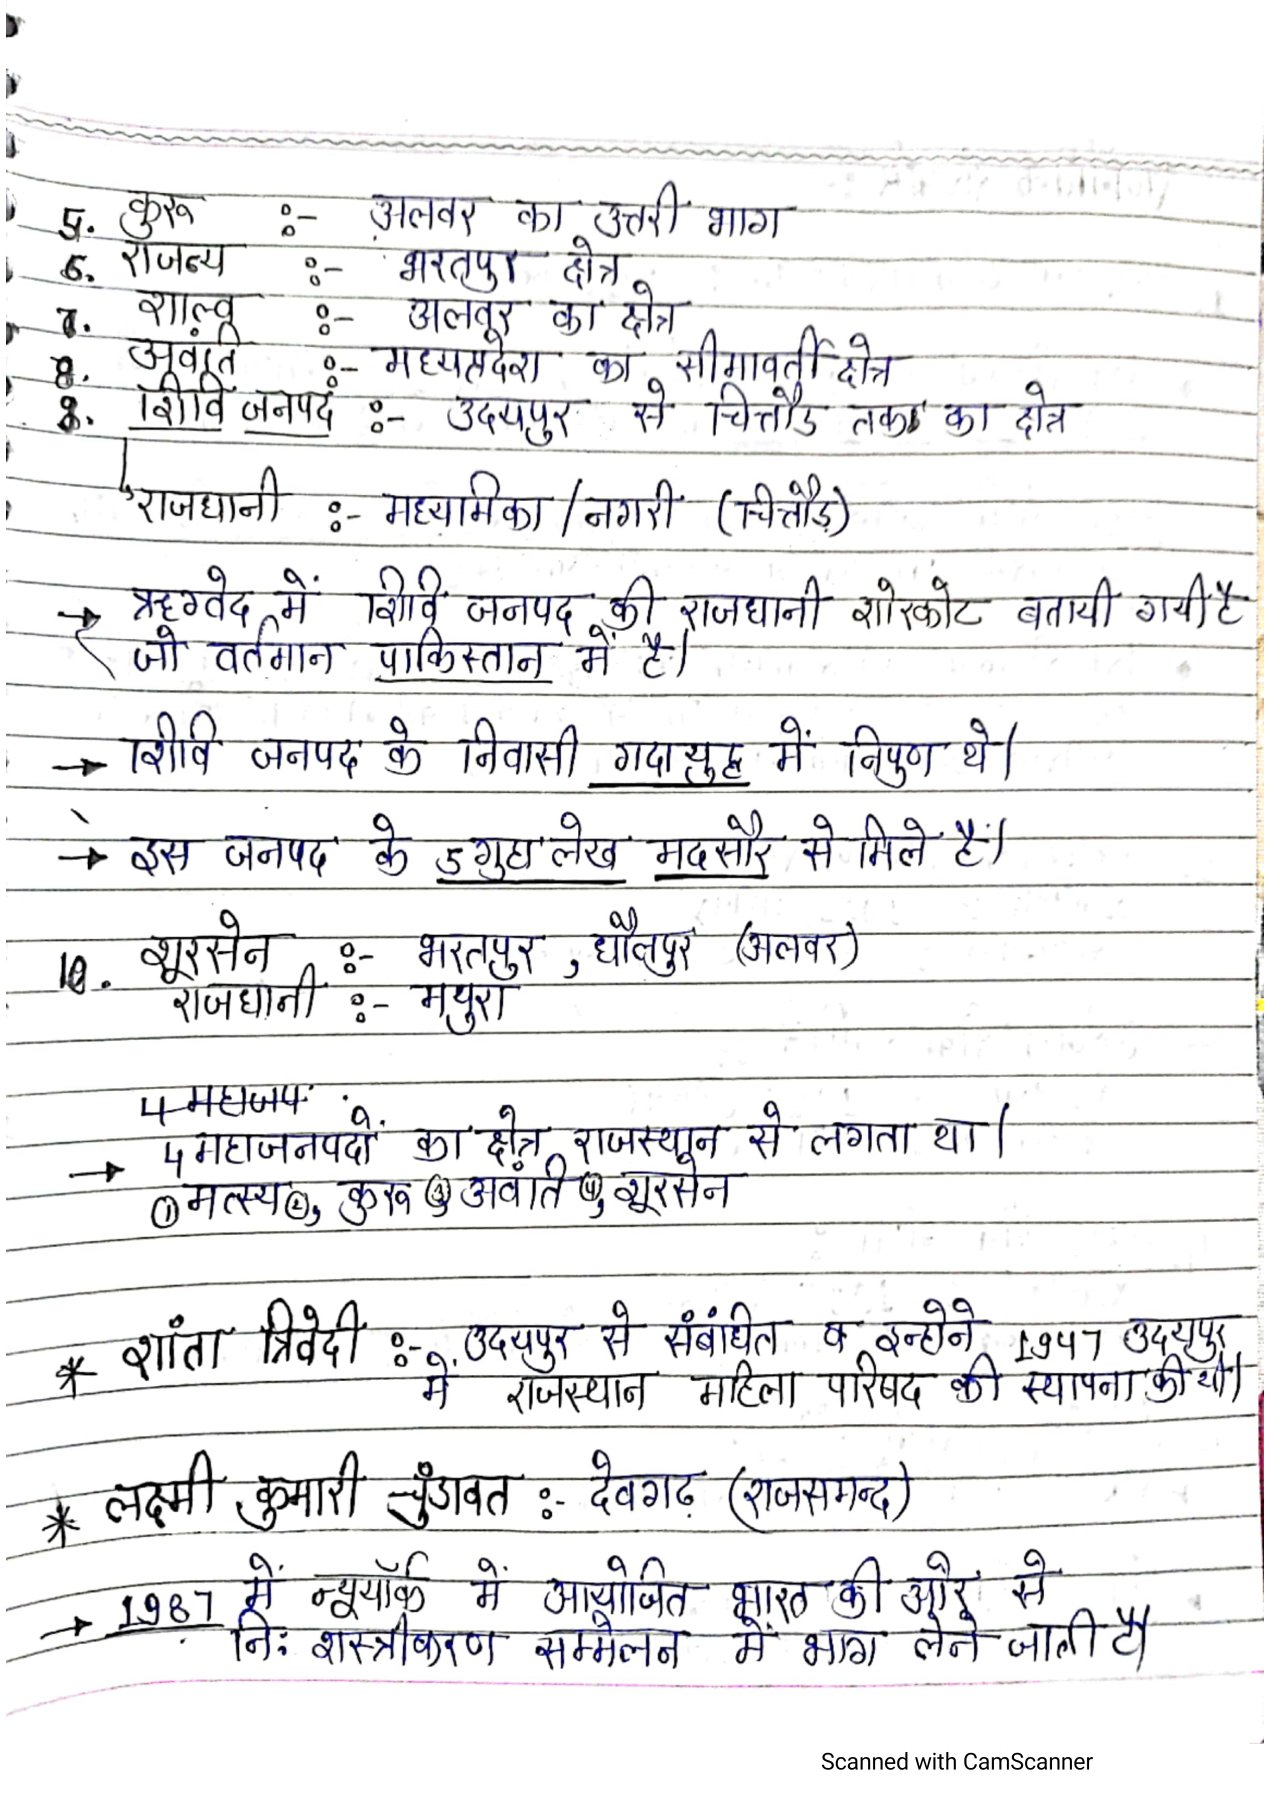 5. कुरू :- अलवर का उत्तरी भाग
6. राजन्य :- भरतपुर क्षेत्र
7. शाल्व :- अलवर का क्षेत्र
8. अवंति :- मध्यप्रदेश का सीमावर्ती क्षेत्र
शिवि जनपद :- उदयपुर से चित्तौड़ तक का क्षेत्र
राजधानी :- मध्यामिका/नगरी (चित्तौड़)
→ ऋग्वेद में शिवि जनपद की राजधानी शोरकोट बतायी गयी है
जो वर्तमान पाकिस्तान में है।
→ शिवि जनपद के निवासी गदायुद्ध में निपुण थे।
→ इस जनपद के 5 गुहा लेख मदसौर से मिले हैं।
10. शूरसेन :- भरतपुर, धौलपुर (अलवर)
राजधानी :- मथुरा
4 महाजप
→ 4 महाजनपदों का क्षेत्र राजस्थान से लगता था।
① मत्स्य ②, कुरू ③ अवंति ④, शूरसेन
* शांता त्रिवेदी :- उदयपुर से संबंधित व इन्होने 1947 उदयपुर
में राजस्थान महिला परिषद की स्थापना की थी।
* लक्ष्मी कुमारी चुंडावत :- देवगढ़ (राजसमन्द)
→ 1987 में न्यूयॉर्क में आयोजित भारत की और से
नि: शस्त्रीकरण सम्मेलन में भाग लेने जाती है।
Scanned with CamScanner